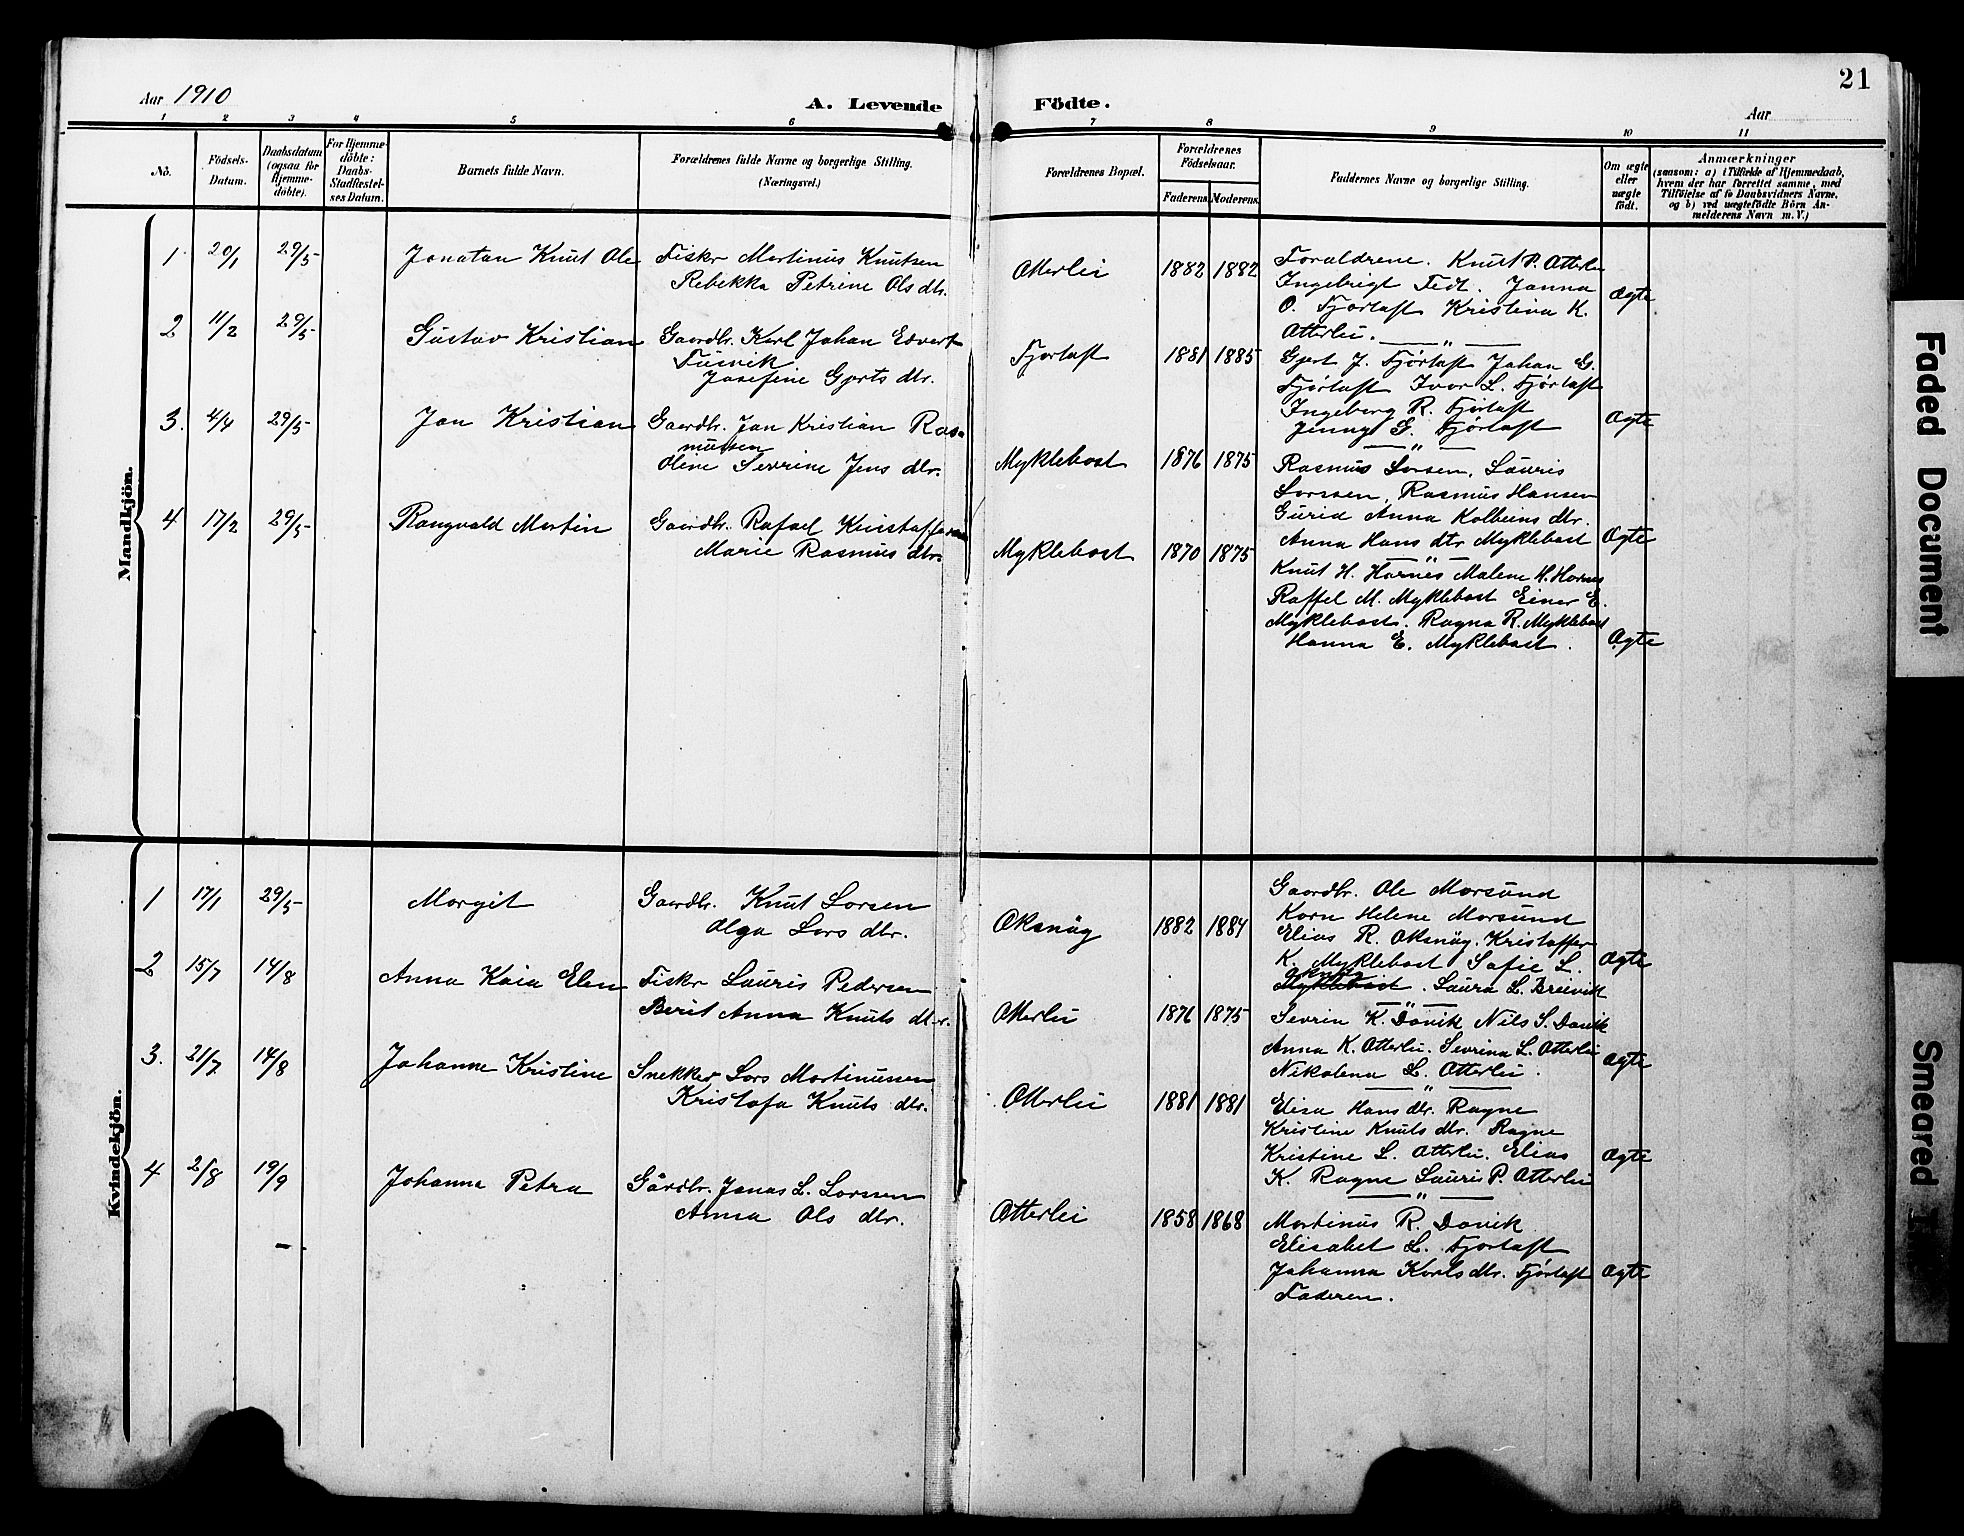 21
Aar 1910
A. Levende Födte.
Aar
1 2 3 4 5 6 7 8 9 10 11
No.
Födsels-
Datum.
Daabsdatum
(ogsaa for
Hjemme-
döbte).
For Hjemme-
döbte:
Daabs-
Stadfæstel-
ses Datum.
Barnets fulde Navn.
Forældrenes fulde Navne og borgerlige Stilling.
(Næringsvei.)
Forældrenes Bopæl.
Forældrenes
Födselsaar.
Faderens. Moderens.
Faddernes Navne og borgerlige Stilling.
Om ægte
eller
uægte
födt.
Anmærkninger
(saasom: a) i Tilfælde af Hjemmedaab,
hvem der har forrettet samme, med
Tilföielse af to Daabsvidners Navne,
og b) ved uægtefödte Börn An-
melderens Navn m. V.)
Mandkjön.
1. 20/1 29/5 Jonatan Knut Ole
Fisker Martinus Knutsen
Rebekka Petrine Ols dtr.
Otterlei 1882 1882
Foraldrene. Knut P. Otterlei
Ingebrigt Janna
O. Fjørtoft Kristina K.
Otterlei.
Ægte
2 11/2 29/5 Gustav Kristian
Gaardbr. Karl Johan Edvart
Tusvik
Josefine Gjerts dtr.
Fjørtoft 1881 1885
— " —
Gjert J. Fjørtoft Johan G.
Fjørtoft Ivar L. Fjørtoft
Ingeborg R. Fjørtoft
Jenny G. Fjørtoft
Ægte
3. 4/4 29/5 Jan Kristian
Gaardbr. Jan Kristian Ras-
mussen
Oline Sevrine Jens dtr.
Myklebost 1876 1875
— " —
Rasmus Larsen, Lauris
Larssen, Rasmus Hansen
Gurid Anna Kolbeins dtr.
Anna Hans dtr Myklebost
Ægte
4 17/2 29/5 Rangvald Martin
Gaardbr. Rafael Kristoffersen
Marie Rasmus dtr.
Myklebost 1870 1875
— " —
Knut H. Harnes Malene H. Harnes
Raffel M. Myklebost Einar E.
Myklebost. Ragna R. Myklebost
Hanna E. Myklebost.
Ægte
Kvindekjön.
1 17/1 29/5 Margit
Gaardbr. Knut Larsen
Olga Lars dtr.
Oksnøy 1882 1884
Gaardbr. Ole Morsund
Karn Helene Morsund
Elias R. Oksnøy. Kristoffer
K. Myklebost Sofie L.
Oksnøy
Myklebost. Laura L. Breivik
Ægte
2 15/7 14/8 Anna Kaia Elen
Fisker Lauris Pedersen
Berit Anna Knuts dtr.
Otterlei 1876 1875
— " —
Sevrin K. Davik Nils S. Davik
Anna K. Otterlei. Sevrina L. Otterlei
Nikolena L. Otterlei.
Ægte
3. 21/7 14/8 Johanne Kristine
Snekker Lars Martinussen
Kristofa Knuts dtr.
Otterlei 1881 1881
— " —
Elisa Hans dtr. Rogne
Kristine Knuts dtr. Rogne
Kristine L. Otterlei. Elias
K. Rogne Lauris P. Otterlei
Ægte
4 2/8 19/9 Johanna Petra
Gårdbr. Jonas L. Larsen
Anna Ols dtr.
Otterlei 1858 1868
— " —
Martinus R. Davik
Elisabet L. Fjørtoft
Johanna Karls dtr. Fjørtoft
Faderen.
Ægte
Faded Document
Smeared